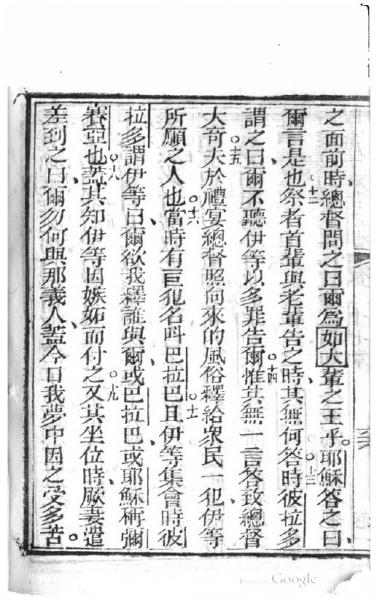 之面前時、總督問之曰爾爲如大輩之王乎。耶穌答之曰
爾言是也。十二祭者首輩與老輩告之時、其無何答。十三時彼拉多
謂之曰爾不聽伊等以多罪告爾、十四惟其無一言答、致總督
大奇。十五夫於禮宴總督照向來的風俗釋給眾民一犯伊等
所願之人也。十六當時有巨犯名呌巴拉巴。十七且伊等集會時彼
拉多謂伊等曰、爾欲我釋誰與爾、或巴拉巴、或耶穌稱彌
賽亞也。十八葢其知伊等因嫉妬而付之。十九又其坐位時、厥妻遣
差到之曰爾勿何與那義人、葢今日我夢中因之受多苦。
Google